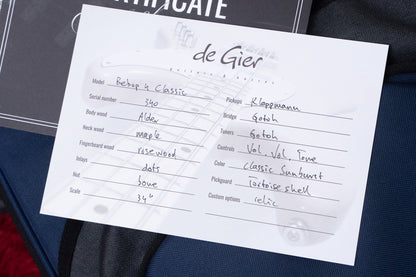 CERTIFICATE
de Gier
guitars & basses
Model Bebop 4 Classic
Serial number 340
Body wood Alder
Neck wood maple
Fingerboard wood rosewood
Inlays dots
Nut bone
Scale 34"
Pickups Kloppmann
Bridge Gotoh
Tuners Gotoh
Controls Vol, Vol, Tone
Color Classic Sunburst
Pickguard Tortoise shell
Custom options relic